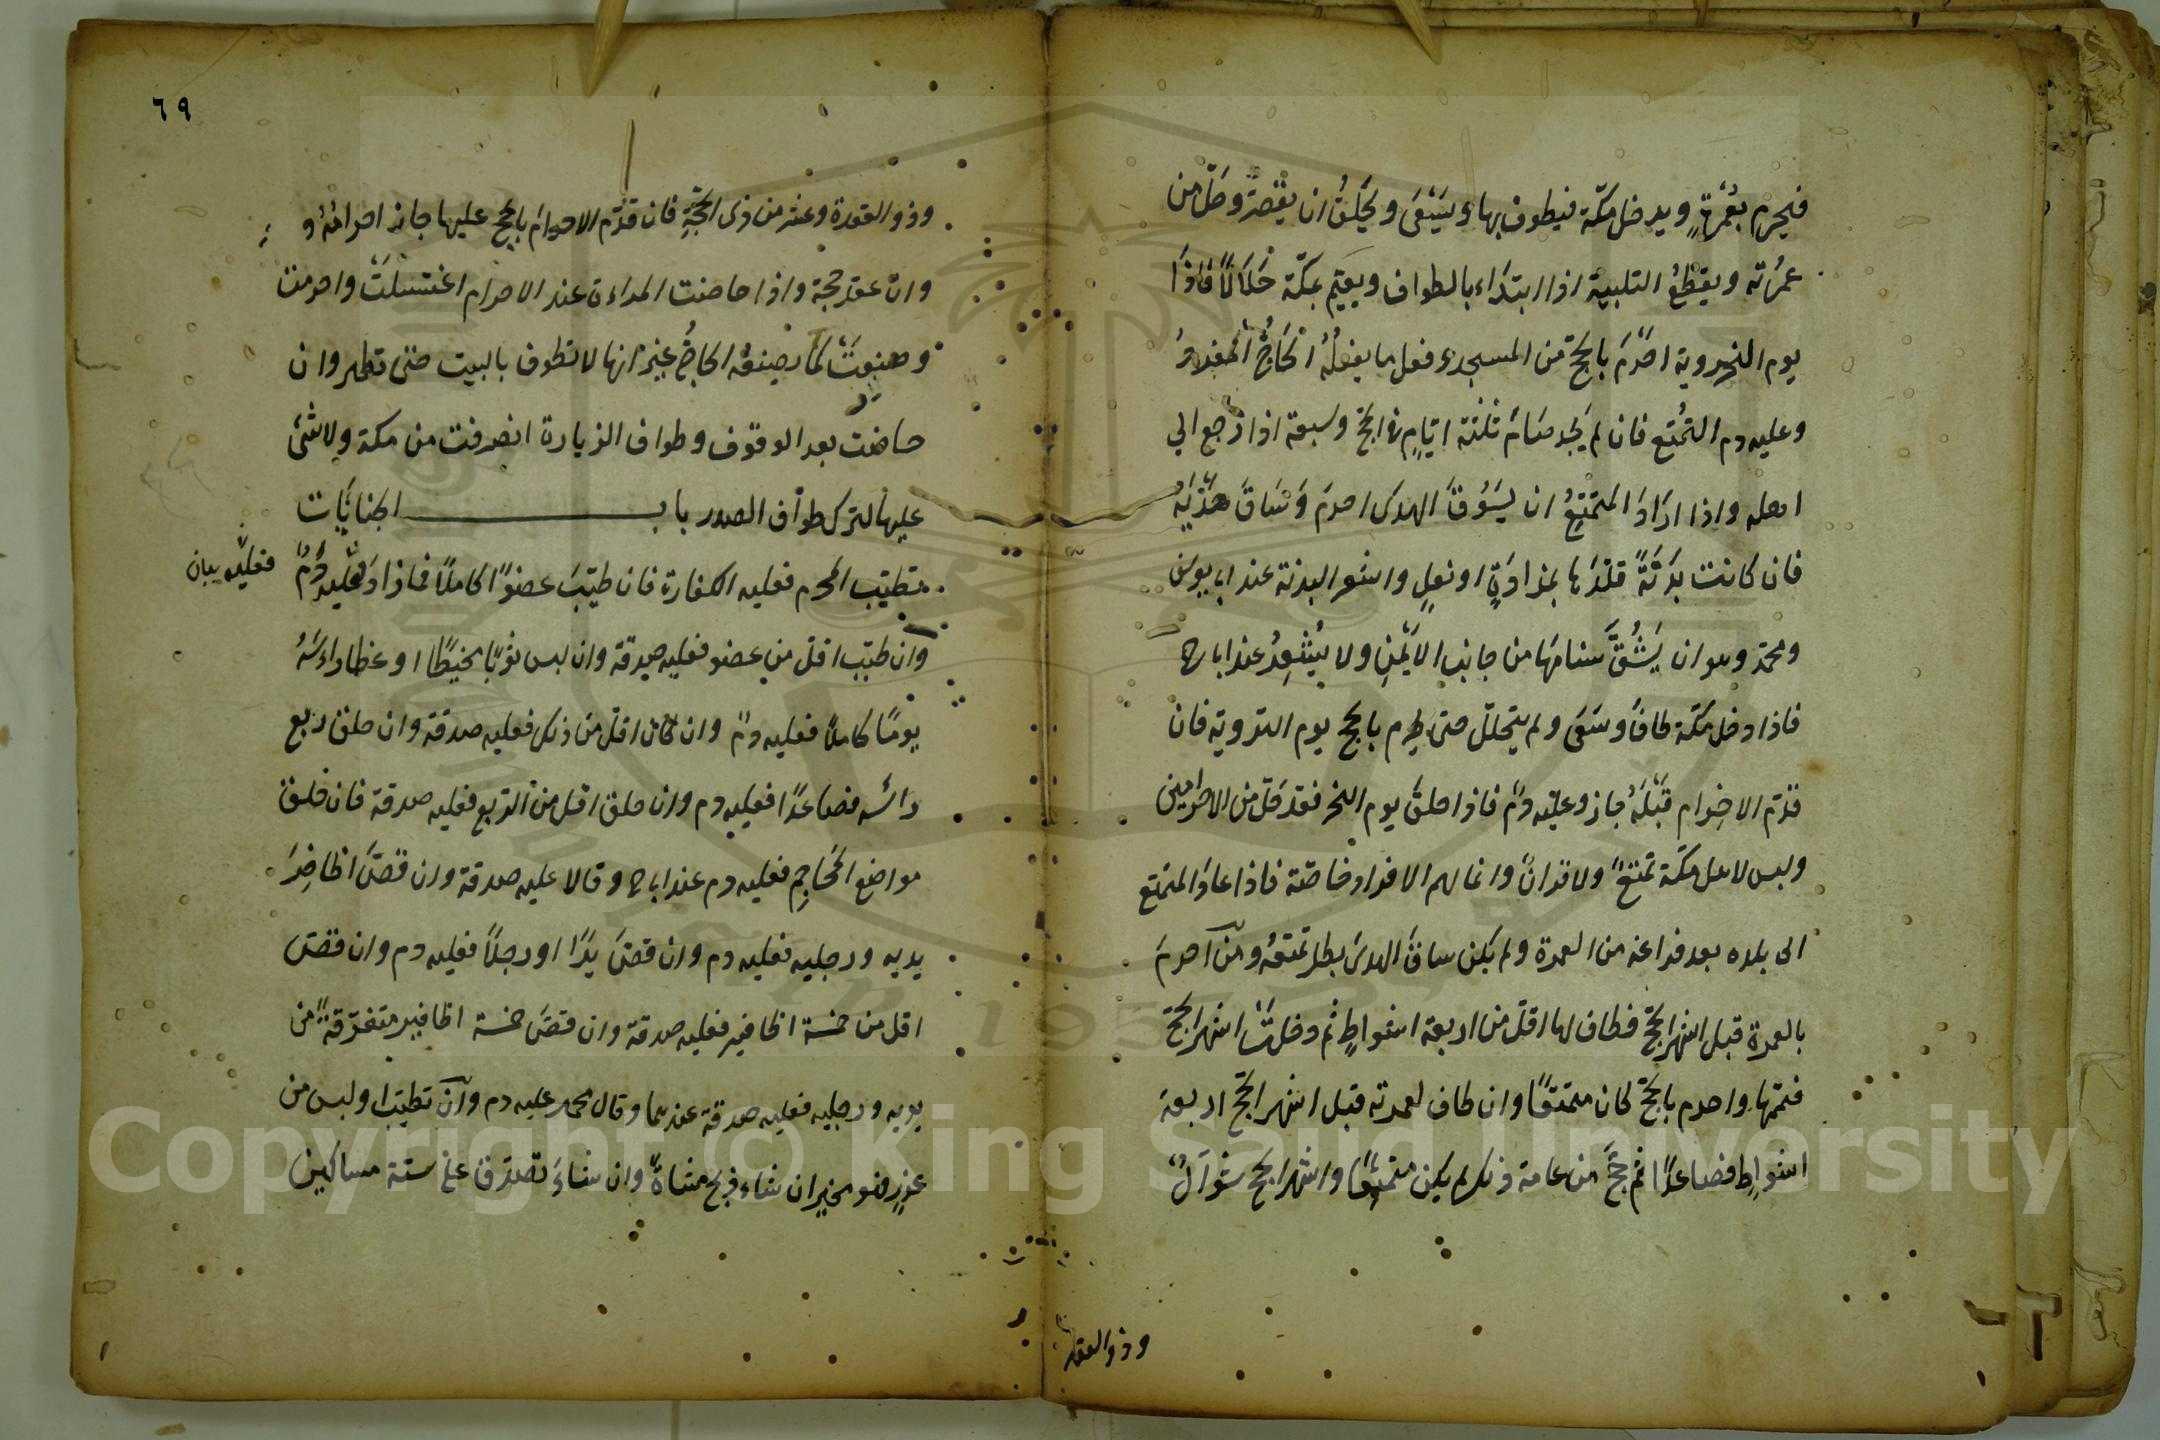 فيحرم بعُمْرَةٍ ويدخل مكّة فيطوف بها ويَسْعَى ويَحْلِقُ ان يُقَصِّرُ وحَلّ من
عمرُته ويقطعُ التلبية اذا ابتدَاء بالطواف ويقيم بمكّة حَلَالًا فاذا
يوم التروية احْرَمَ بالحَجّ من المسجد وفعل ما يفعلُهُ الحَاجُّ المفردُ
وعليه دم التمُتع فان لم يَجد صَامَ ثلثة ايّامٍ في الحَجّ وسبعة اذا رجع الي
اهله واذا ارَادَ المَتمتِعُ ان يَسُوقَ الهدىَ احرمَ وَسَاقَ هَدْيَهُ
فان كانت بدَنَةً قلّدَها بمزادَةٍ او نعلٍ واشعر البدنة عند ابايوسَف
ومحمّد وهو ان يَشُقَّ سنامَها من جانب الايْمَنِ ولا يُشْعِرُ عند اباح
فاذا دخل مكّة طافَ وسَعَى ولم يتحلّل حتى يحرم بالحج يوم التروية فان
قدّم الاحرام قَبْلَهُ جاز وعليه دمٌ فاذا حلقَ يوم النحر فقد حَلّ من الاحرامين
وليس لاهل مكّة تمتعٌ ولا قرانٌ وانما لهم الافراد خاصّة فاذا عادَ المتمتع
الى بلده بعد فراغه من العمرة ولم يكن ساقَ الهدىَ بطل تمتعُهُ ومن احرمَ
بالعمرة قبل اشهر الحَجّ فطاف لها اقلّ من اربعة اشواطٍ ثم دخلتْ اشهر الحَجّ
فتمّمها واحرم بالحَجّ كان متمتعًا وان طاف لعمرته قبل اشهر الحَجّ اربعة
اشواطٍ فصاعدًا ثم حَجَّ من عامة ذلك لم يكن متمتعًا واشهر الحج شوّالٌ
وذو القعدة
٦٩
وذو القعدة وعشر من ذى الحَجّةِ فان قدّم الاحرامَ بالحج عليها جاز احرامُهُ و
وانعقد حجّة واذا حاضت المراءة عند الاحرام اغتسلَتْ واحرمت
وصنعَتْ كما يصنعُهُ الحاجُّ غير انها لا تطوف بالبيت حتى تطهر وان
حاضت بعد الوقوف وطواف الزيارة انصرفت من مكة ولا شئ
عليها لترك طواف الصدر باب الجنايَات
تطيّب المحرم فعليه الكفارة فان طيّبَ عضوًا كاملًا فمازادَ فعليه دَمٌ
فعليه بيان
وان طيّب اقلّ من عضو فعليه صدقة وان لبس ثوبًا مخيطًا او غطا راءسَهُ
يومًا كاملًا فعليه دمٌ وان كان اقلّ من ذلك فعليه صدقة وان حلق ربع
رائسه فصاعدًا فعليه دم وان حلق اقل من الربع فعليه صدقة فان حلق
مواضع المحَاجِمِ فعليه دم عند اباح وقالا عليه صدقة وان قصّ اظاضِرَ
يديه ورجليه فعليه دم وان قصّ يدًا او رجلًا فعليه دم وان قصّ
اقل من خمسة اظافير فعليه صدقة وان قصّ خمسة اظافير متفرّقةً من
يديه ورجليه فعليه صدقة عندهما وقال محمد عليه دم وان تطيّب او لبس من
عذرٍ فهو مخير ان شاء ذبح شاةً وان شاءَ تصدّق على ستة مساكين
Copyright © King Saud University